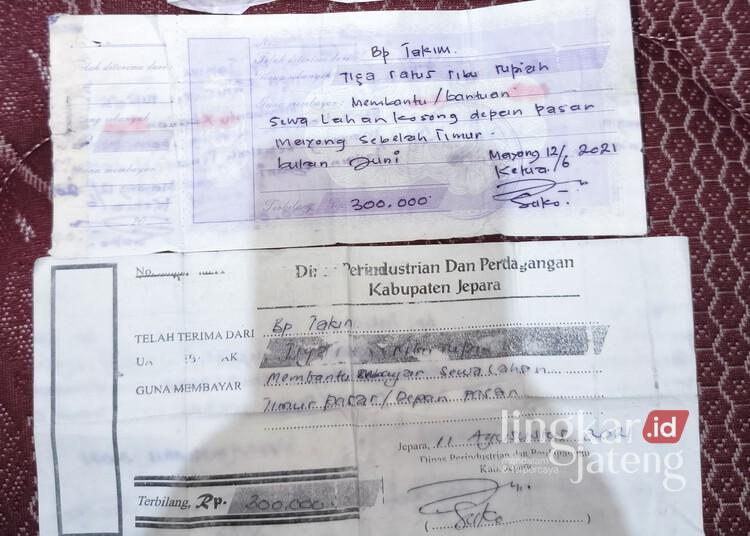 No.
Telah diterima dari
Bp Takim.
Uang sebanyak
Tiga ratus ribu rupiah
Guna membayar: Membantu/bantuan
Sewa Lahan kosong depan pasar
Mayong Sebelah Timur.
bulan Juni
Mayong 12/6 2021
Ketua
Terbilang Rp. 300.000.
Suko.
No.
Perindustrian Dan Perdagangan
Kabupaten Jepara
TELAH TERIMA DARI Bp Takin
Tiga ribu rupi
GUNA MEMBAYAR Membantu sewa Lahan
Timur pasar/Depan pasar
Jepara, 11 Agustus 2021
Dinas Perindustrian dan Perdagangan
Terbilang, Rp. 300.000.
(Suko)
lingkar.id
jateng